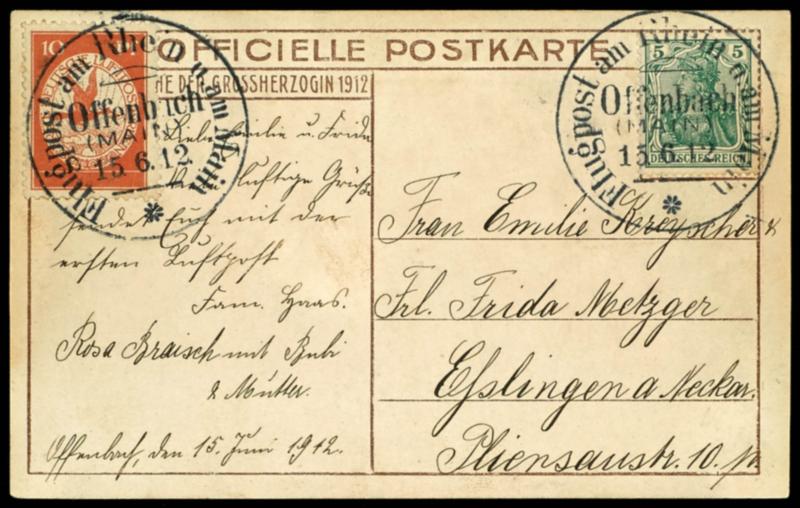 OFFICIELLE POSTKARTE
HE DER GROSSHERZOGIN 1912
10
5 5
DEUTSCHES REICH
Flugpost am Rhein u. am Main
Offenbach
(MAIN)
15 6.12
Flugpost am Rhein u. am Main
Offenbach
(MAIN)
15 6.12
Liebe Emilie u. Frida
luftige Grüße
sendet Euch mit der
ersten Luftpost
Fam. Haas.
Rosa Braisch mit Bubi
& Mutter.
Offenbach, den 15. Juni 1912.
Frau Emilie Kreyscher &
Frl. Frida Metzger
Eßlingen a Neckar.
Pliensaustr. 10.